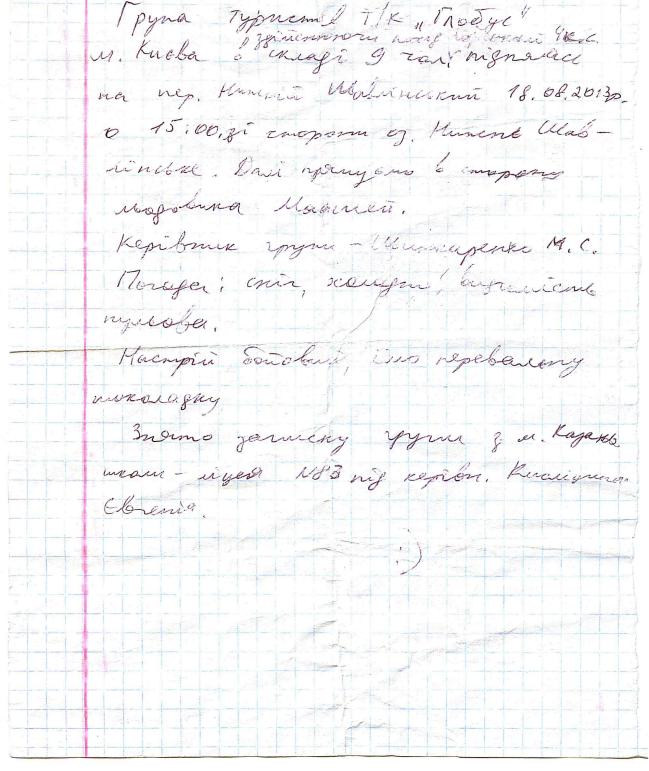 Група туристів т/к „Глобус"
здійснюючи похід гірський 4 к.с.
м. Києва в складі 9 чол. піднялася
на пер. Нижній Шавлинський 18.08.2013р.
о 15:00, зі сторони оз. Нижнє Шав-
лінське. Далі прямуємо в сторону
льодовика Маашей.
Керівник групи – Шинкаренко М.С.
Погода: сніг, холодно, видимість
нульова.
Настрій бойовий, їмо перевальну
шоколадку
Знято записку групи з м. Казань
школи-ліцея №83 під керівн.
Євгенія.
:)